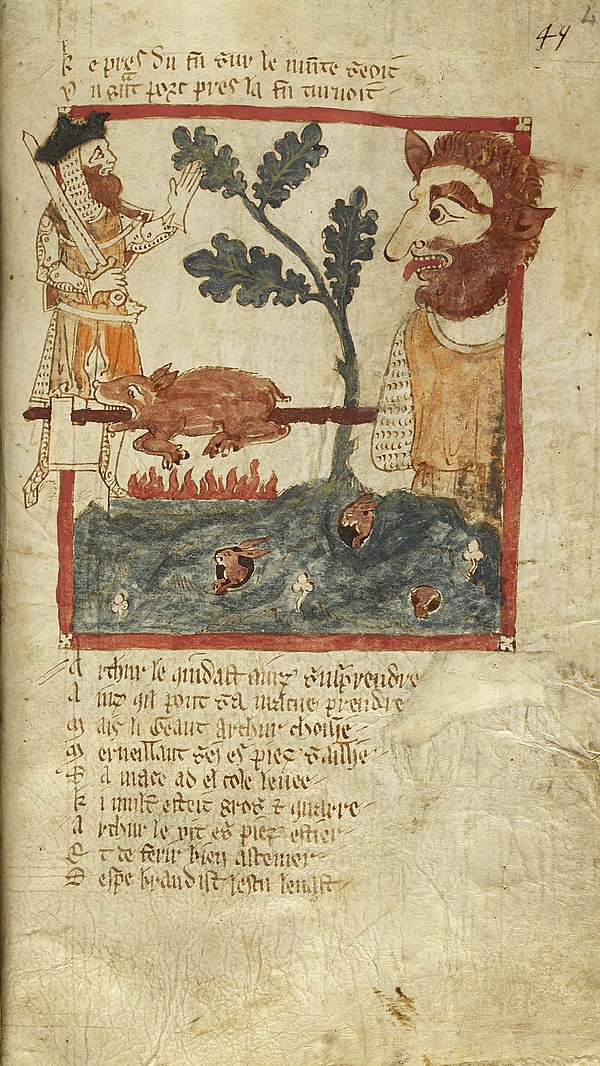 49
k e pres du fu sur le munte seoit
v n grant porc pres la fu turnoit
A rthur le quidast ainz susprendre
A inz qil pout sa macue prendre
M ais li Geant Arthur choisie
M erueillant sei es piez saillie
S a mace ad el cole leuee
k i mult esteit gros & quarre
A rthur le vit es piez ester
E t de ferir bien astemer
S espe brandist lescu leuast